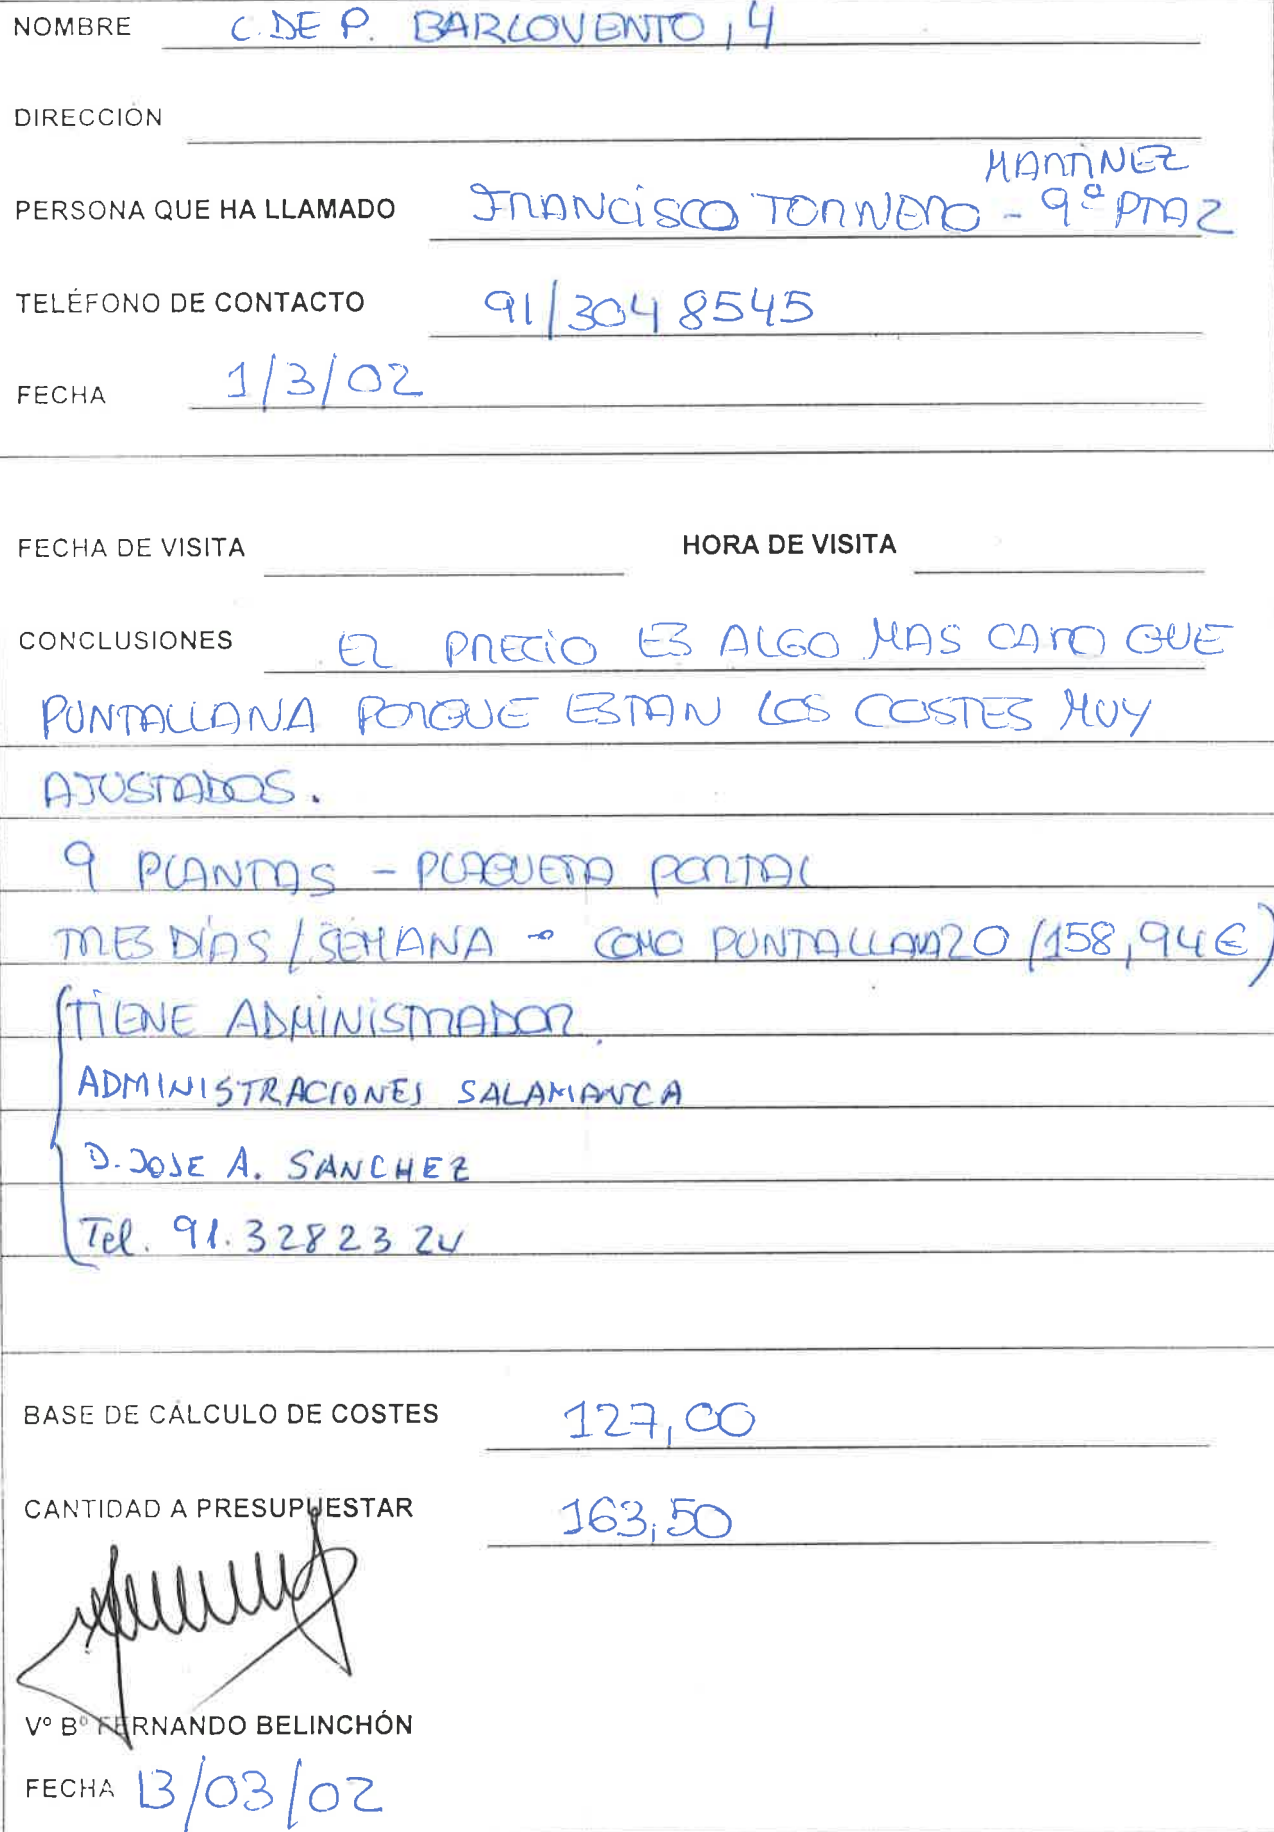 NOMBRE C. DE P. BARLOVENTO, 4
DIRECCIÓN
MARTINEZ
PERSONA QUE HA LLAMADO FRANCISCO TORNERO - 9º PTA 2
TELÉFONO DE CONTACTO 91/304 8545
FECHA 1/3/02
FECHA DE VISITA HORA DE VISITA
CONCLUSIONES EL PRECIO ES ALGO MAS CARO QUE
PUNTALLANA PORQUE ESTAN LOS COSTES MUY
AJUSTADOS.
9 PLANTAS - PLAQUETA PORTAL
TRES DÍAS / SEMANA - COMO PUNTALLANA 20 (158,94 €)
TIENE ADMINISTRADOR
ADMINISTRACIONES SALAMANCA
D. JOSE A. SANCHEZ
Tel. 91. 328 23 24
BASE DE CÁLCULO DE COSTES 127,00
CANTIDAD A PRESUPUESTAR 163,50
Vº Bº FERNANDO BELINCHÓN
FECHA 13/03/02